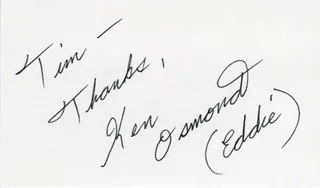 Tim —
Thanks,
Ken Osmond
(Eddie)